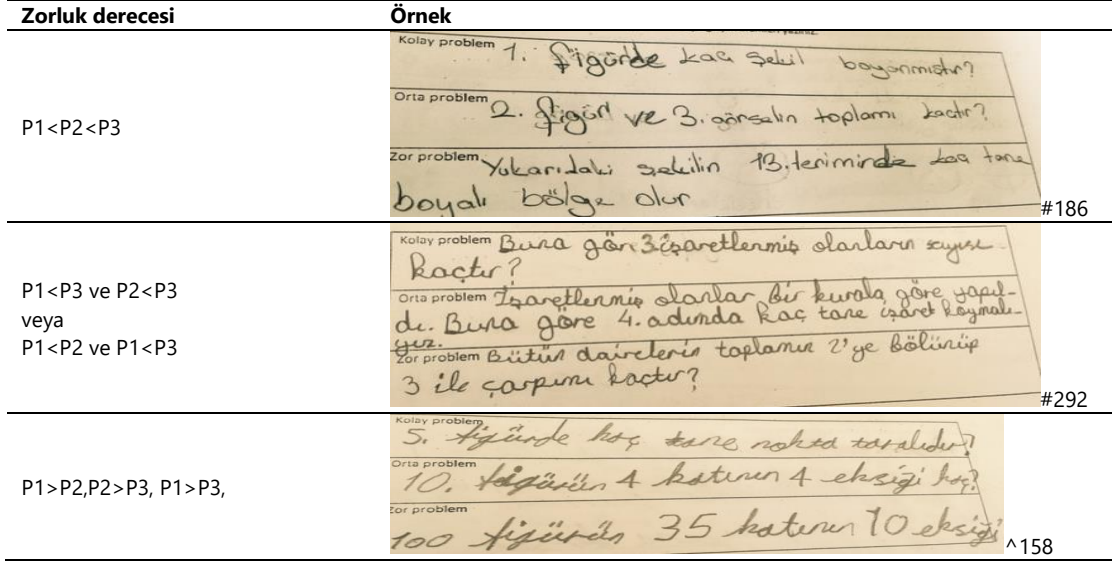 Zorluk derecesi Örnek
P1<P2<P3
Kolay problem 1. figürde kaç şekil boyanmıştır?
Orta problem 2. figür ve 3. görselin toplamı kaçtır?
Zor problem Yukarıdaki şekilin 13. teriminde kaç tane
boyalı bölge olur
#186
P1<P3 ve P2<P3
veya
P1<P2 ve P1<P3
Kolay problem Buna gör 3 işaretlenmiş olanların sayısı
kaçtır?
Orta problem İşaretlenmiş olanlar bir kurala göre yapıl-
dı. Buna göre 4. adımda kaç tane işaret koymalı-
yız.
Zor problem Bütün dairelerin toplamın 2'ye bölünüp
3 ile çarpımı kaçtır?
#292
P1>P2,P2>P3, P1>P3,
Kolay problem
5. figürde kaç tane nokta taralıdır?
Orta problem
10. figürün 4 katının 4 eksiği kaç?
Zor problem
100 figürün 35 katının 10 eksiği
^158